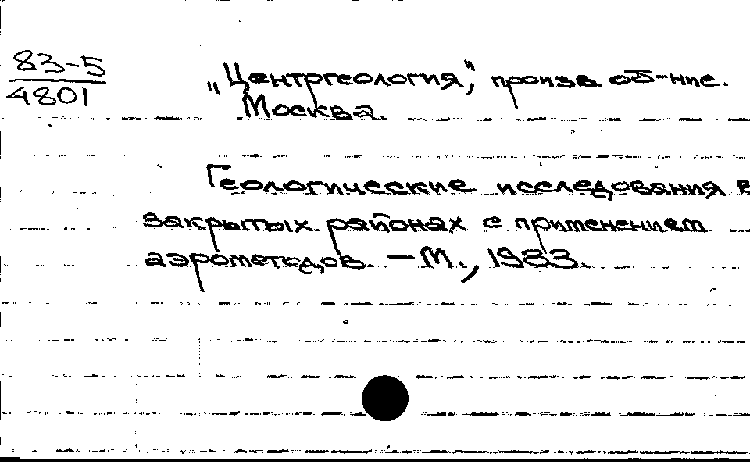 83-5
4801
"Центргеология," произв. об-ние.
Москва.
Геологические исследования в
закрытых районах с применением
аэрометодов. — М., 1983.